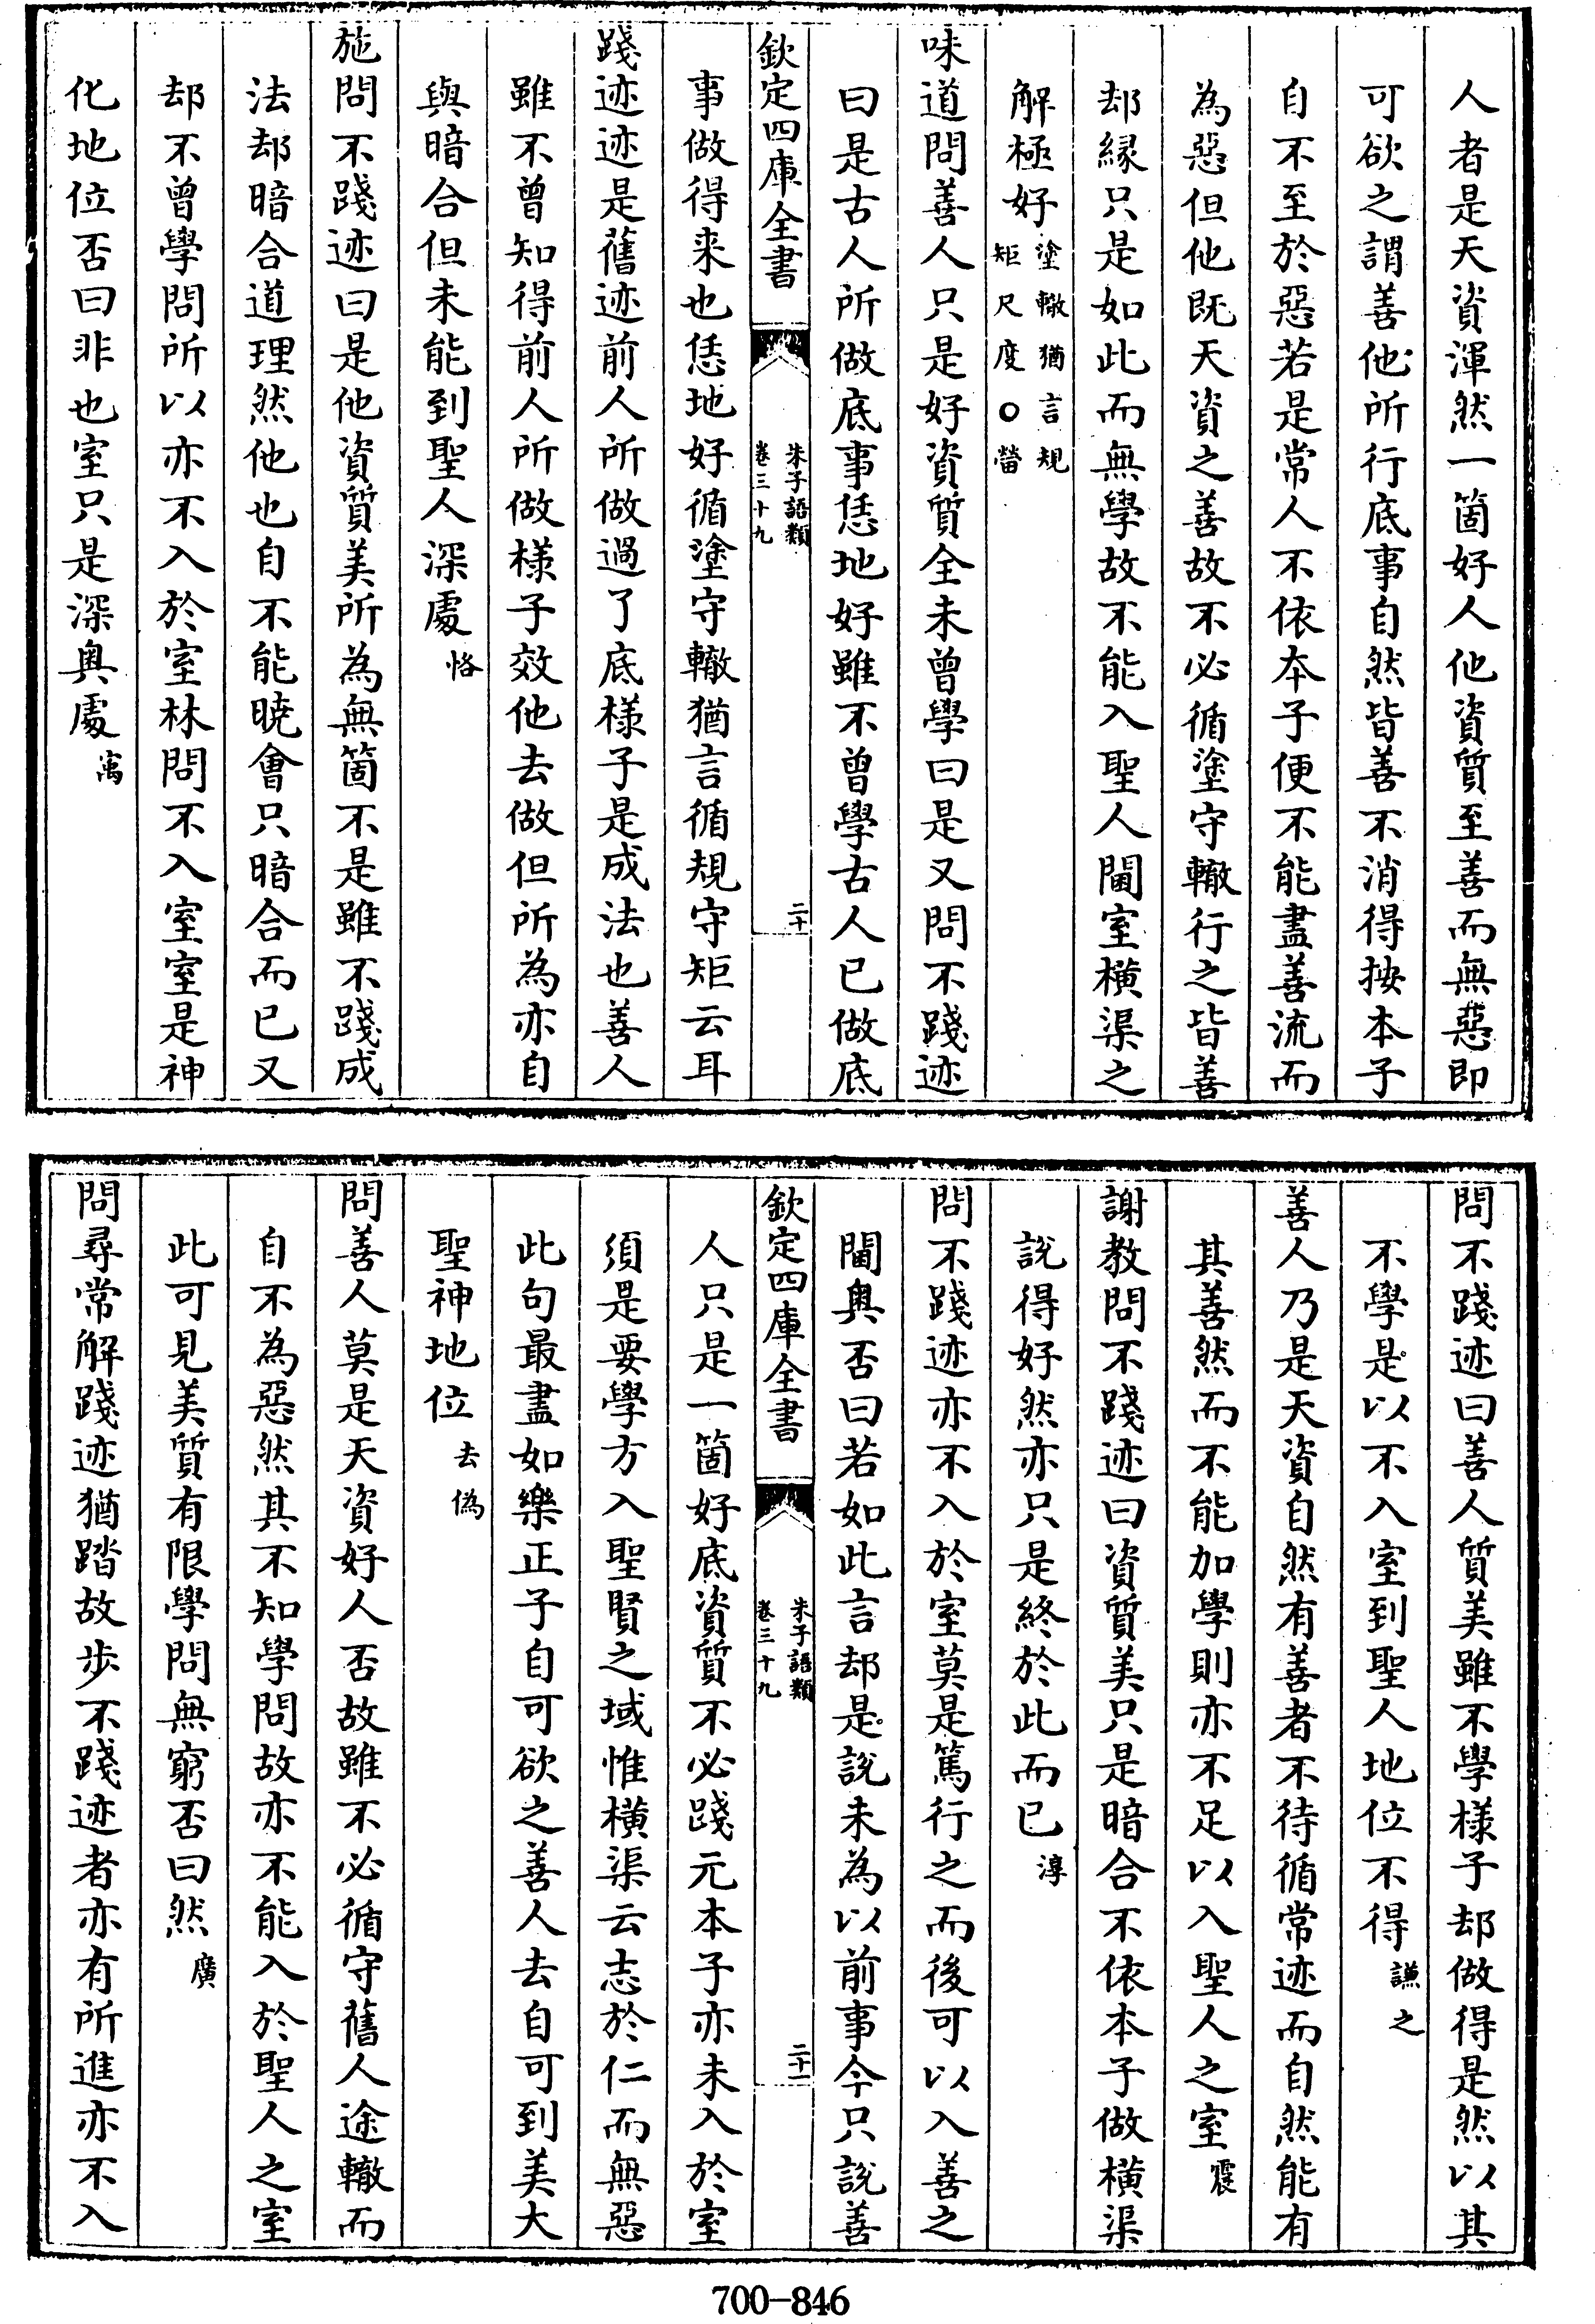 人者是天資渾然一箇好人他資質至善而無惡即
可欲之謂善他所行底事自然皆善不消得按本子
自不至於惡若是常人不依本子便不能盡善流而
為惡但他既天資之善故不必循塗守轍行之皆善
却縁只是如此而無學故不能入聖人閫室橫渠之
解極好塗轍猶言規矩尺度○㽦
味道問善人只是好資質全未曾學曰是又問不踐迹
曰是古人所做底事恁地好雖不曾學古人已做底
欽定四庫全書
朱子語類
卷三十九
二十
事做得来也恁地好循塗守轍猶言循規守矩云耳
踐迹迹是舊迹前人所做過了底様子是成法也善人
雖不曾知得前人所做様子效他去做但所為亦自
與暗合但未能到聖人深處恪
施問不踐迹曰是他資質美所為無箇不是雖不踐成
法却暗合道理然他也自不能曉會只暗合而已又
却不曾學問所以亦不入於室林問不入室室是神
化地位否曰非也室只是深奥處㝢
問不踐迹曰善人質美雖不學様子却做得是然以其
不學是以不入室到聖人地位不得謙之
善人乃是天資自然有善者不待循常迹而自然能有
其善然而不能加學則亦不足以入聖人之室震
謝教問不踐迹曰資質美只是暗合不依本子做橫渠
說得好然亦只是終於此而已淳
問不踐迹亦不入於室莫是篤行之而後可以入善之
閫奥否曰若如此言却是說未為以前事今只說善
欽定四庫全書
朱子語類
卷三十九
二十一
人只是一箇好底資質不必踐元本子亦未入於室
須是要學方入聖賢之域惟橫渠云志於仁而無惡
此句最盡如樂正子自可欲之善人去自可到美大
聖神地位去偽
問善人莫是天資好人否故雖不必循守舊人途轍而
自不為惡然其不知學問故亦不能入於聖人之室
此可見美質有限學問無窮否曰然廣
問尋常解踐迹猶踏故步不踐迹者亦有所進亦不入
700-846